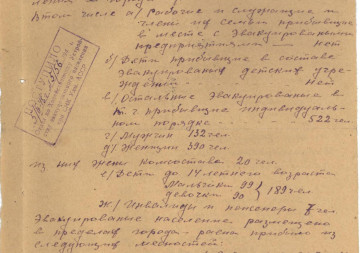 В том числе а/ рабочие и служащие и
члены их семей прибывшие
вместе с эвакуированными
предприятиями — нет
б/ Дети прибывшие в составе
эвакуированных детских учре-
ждений — нет
в/ Остальные эвакуированные в
т.ч прибывшие индивидуаль-
ном порядке 522 чел
г/ Мужчин 132 чел
д/ Женщин 390 чел
из них жен комсостава 20 чел.
е/ Дети до 14 летнего возраста
Мальчики 99
девочки 90 } 189 чел
ж/ Инвалиды и пенсионеры 7 чел
Эвакуированное население размещено
в пределах города - района прибыло из
следующих местностей: